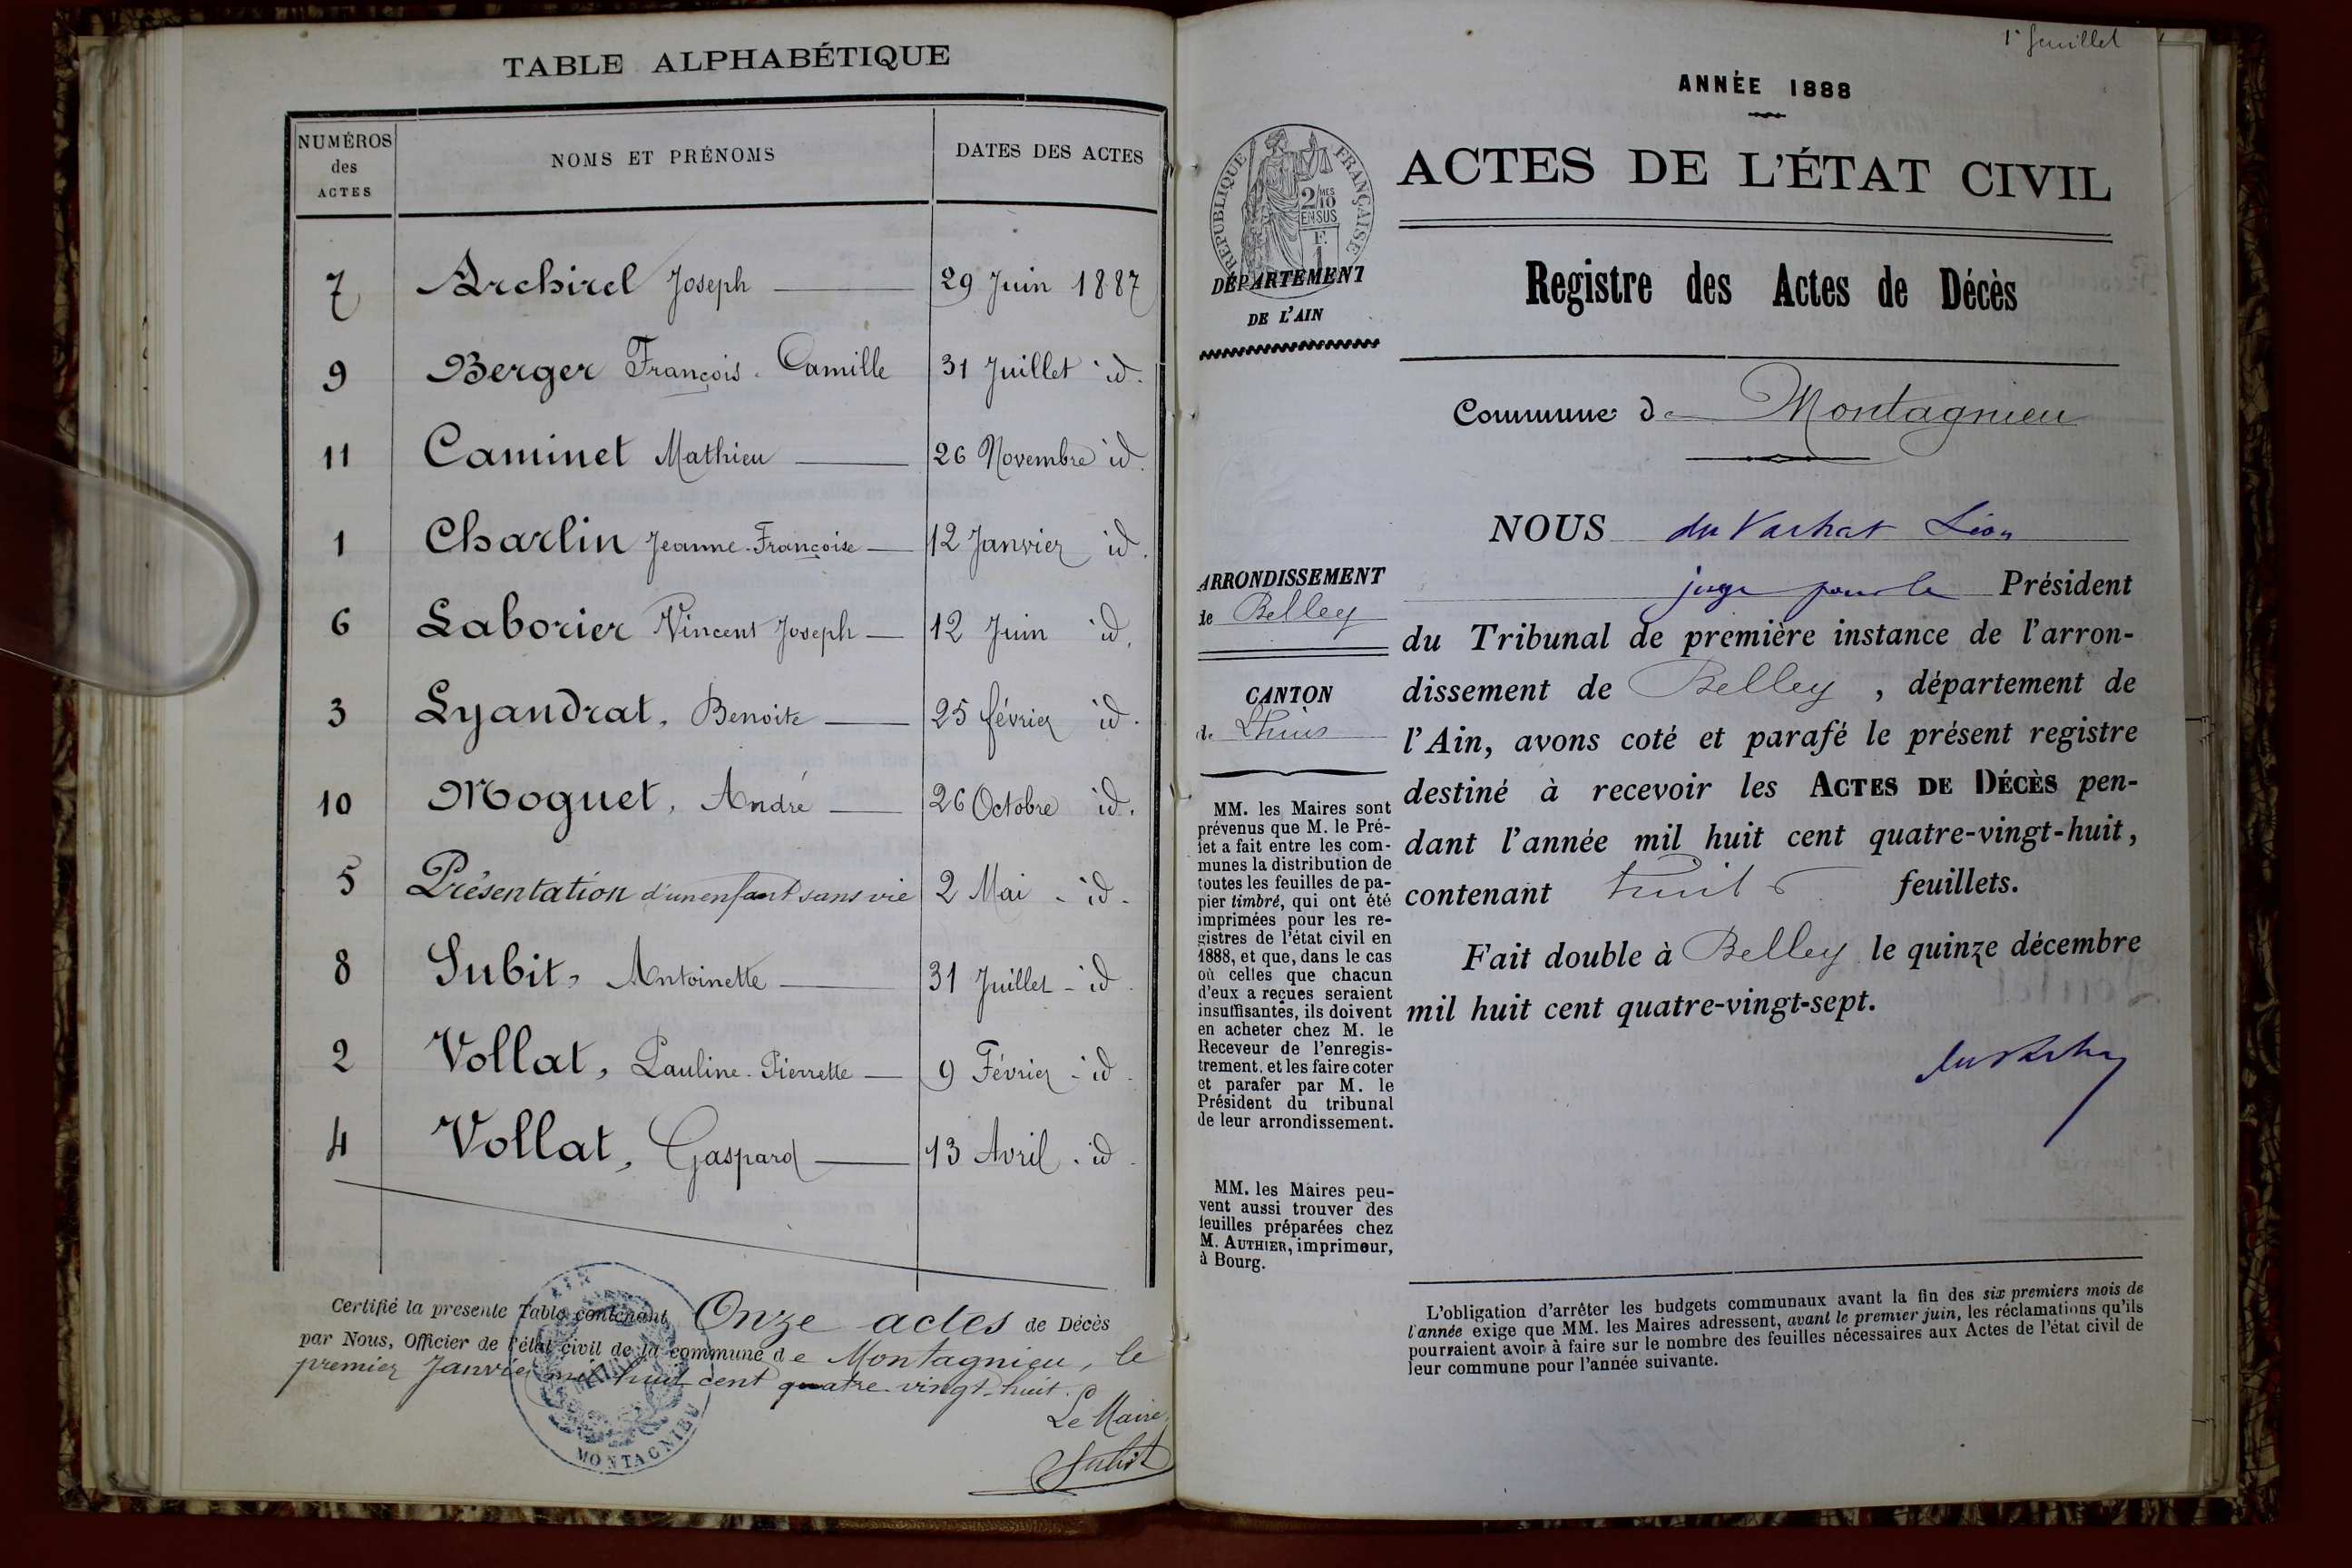 TABLE ALPHABÉTIQUE
NUMÉROS des ACTES
NOMS ET PRÉNOMS
DATES DES ACTES
7 Archirel Joseph 29 Juin 1887
9 Berger François-Camille 31 Juillet id.
11 Caminet Mathieu 26 Novembre id.
1 Charlin Jeanne-Françoise 12 Janvier id.
6 Laborier Vincent Joseph 12 Juin id.
3 Lyandrat, Benoite 25 février id.
10 Moguet, André 26 Octobre id.
5 Présentation d'un enfant sans vie 2 Mai - id.
8 Subit, Antoinette 31 Juillet - id.
2 Vollat, Pauline-Pierrette 9 Février - id.
4 Vollat, Gaspard 13 Avril - id.
Certifié la présente Table contenant Onze actes de Décès
par Nous, Officier de l'état civil de la commune de Montagnieu, le
premier Janvier mil huit cent quatre-vingt-huit.
Le Maire,
Subit
MONTAGNIEU
1er feuillet
ANNÉE 1888
RÉPUBLIQUE FRANÇAISE
2/10MES
EN SUS
F.
1
DÉPARTEMENT
DE L'AIN
ACTES DE L'ÉTAT CIVIL
Registre des Actes de Décès
Commune de Montagnieu
ARRONDISSEMENT
de Belley
CANTON
de Lhuis
MM. les Maires sont
prévenus que M. le Pré-
fet a fait entre les com-
munes la distribution de
toutes les feuilles de pa-
pier timbré, qui ont été
imprimées pour les re-
gistres de l'état civil en
1888, et que, dans le cas
où celles que chacun
d'eux a reçues seraient
insuffisantes, ils doivent
en acheter chez M. le
Receveur de l'enregis-
trement, et les faire coter
et parafer par M. le
Président du tribunal
de leur arrondissement.
MM. les Maires peu-
vent aussi trouver des
feuilles préparées chez
M. AUTHIER, imprimeur,
à Bourg.
NOUS du Vachat Léon
juge pour le Président
du Tribunal de première instance de l'arron-
dissement de Belley, département de
l'Ain, avons coté et parafé le présent registre
destiné à recevoir les ACTES DE DÉCÈS pen-
dant l'année mil huit cent quatre-vingt-huit,
contenant huit feuillets.
Fait double à Belley le quinze décembre
mil huit cent quatre-vingt-sept.
L'obligation d'arrêter les budgets communaux avant la fin des six premiers mois de
l'année exige que MM. les Maires adressent, avant le premier juin, les réclamations qu'ils
pourraient avoir à faire sur le nombre des feuilles nécessaires aux Actes de l'état civil de
leur commune pour l'année suivante.